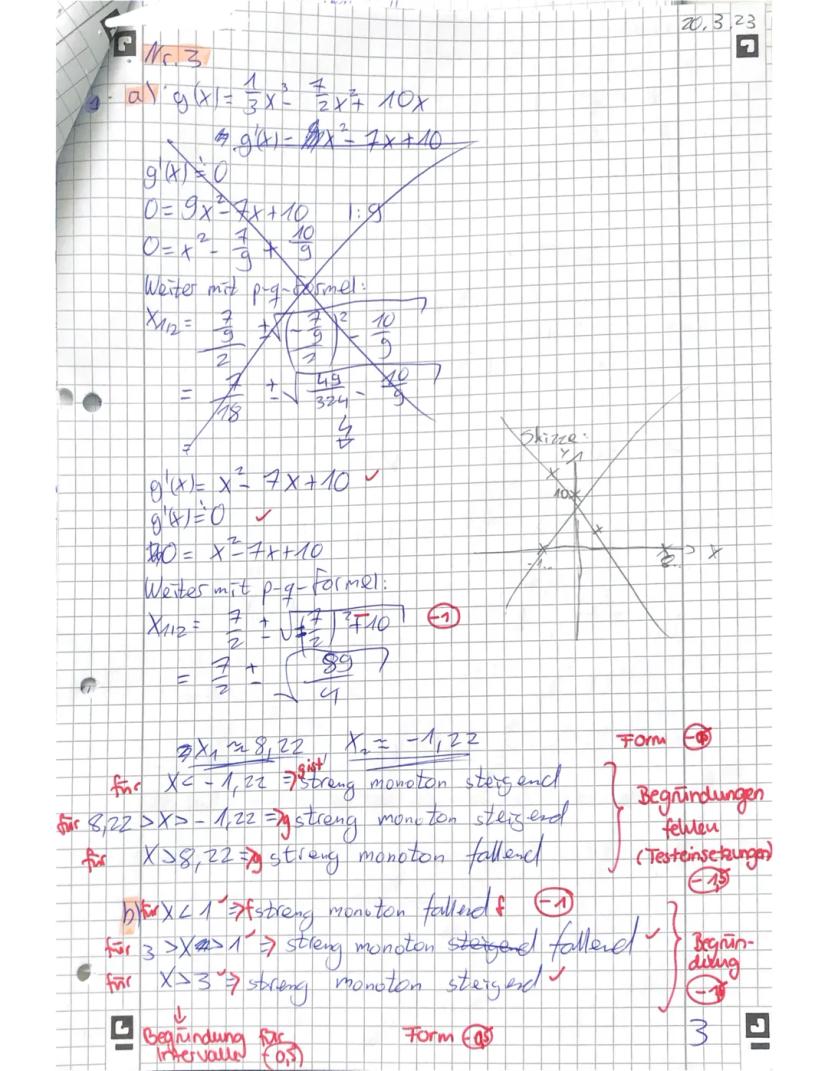 20.3.23
Nr. 3
a) g(x) = 1/3 x³ - 7/2 x² + 10x
g'(x) = x² - 7x + 10
g'(x) = 0
0 = 9x² - 7x + 10 | : 9
0 = x² - 7/9 + 10/9
Weiter mit p-q-Formel:
x1/2 = (7/9)/2 ± √(((-7/9)/2)² - 10/9)
= 7/18 ± √(49/324 - 10/9)
=
Skizze:
y
10
-1..
8..
x
g'(x) = x² - 7x + 10 ✓
g'(x) = 0 ✓
0 = x² - 7x + 10
Weiter mit p-q-Formel:
x1/2 = 7/2 ± √((7/2)² + 10) (-1)
= 7/2 ± √(89/4)
⇒ x1 ≈ 8,22 x2 ≈ -1,22 Form
für x < -1,22 ⇒ g ist streng monoton steigend
für 8,22 > x > -1,22 ⇒ g streng monoton steigend
für x > 8,22 ⇒ g streng monoton fallend
Begründungen
fehlen
(Testeinsetzungen)
(-1,5)
b) für x < 1 ⇒ f streng monoton fallend f (-1)
für 3 > x > 1 ⇒ streng monoton steigend fallend ✓
für x > 3 ⇒ streng monoton steigend ✓
Begrün-
dung
↓
Begründung für
Intervalle (-0,5)
Form (-0,5)
3